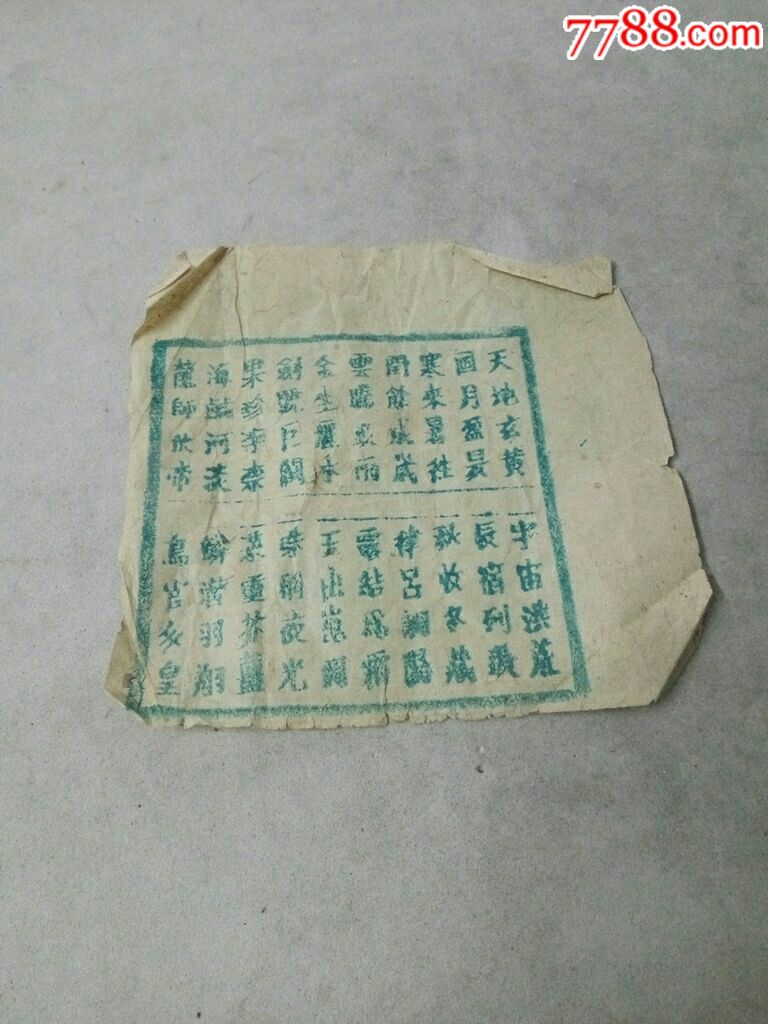 7788.com
天地玄黄
宇宙洪荒
月盈昃
辰宿列張
寒來暑往
秋收冬藏
閏餘成歲
律呂調陽
雲騰致雨
露結爲霜
金生麗水
玉出崑岡
劍號巨闕
珠稱夜光
果珍李柰
菜重芥薑
海鹹河淡
鱗潛羽翔
龍師火帝
鳥官人皇